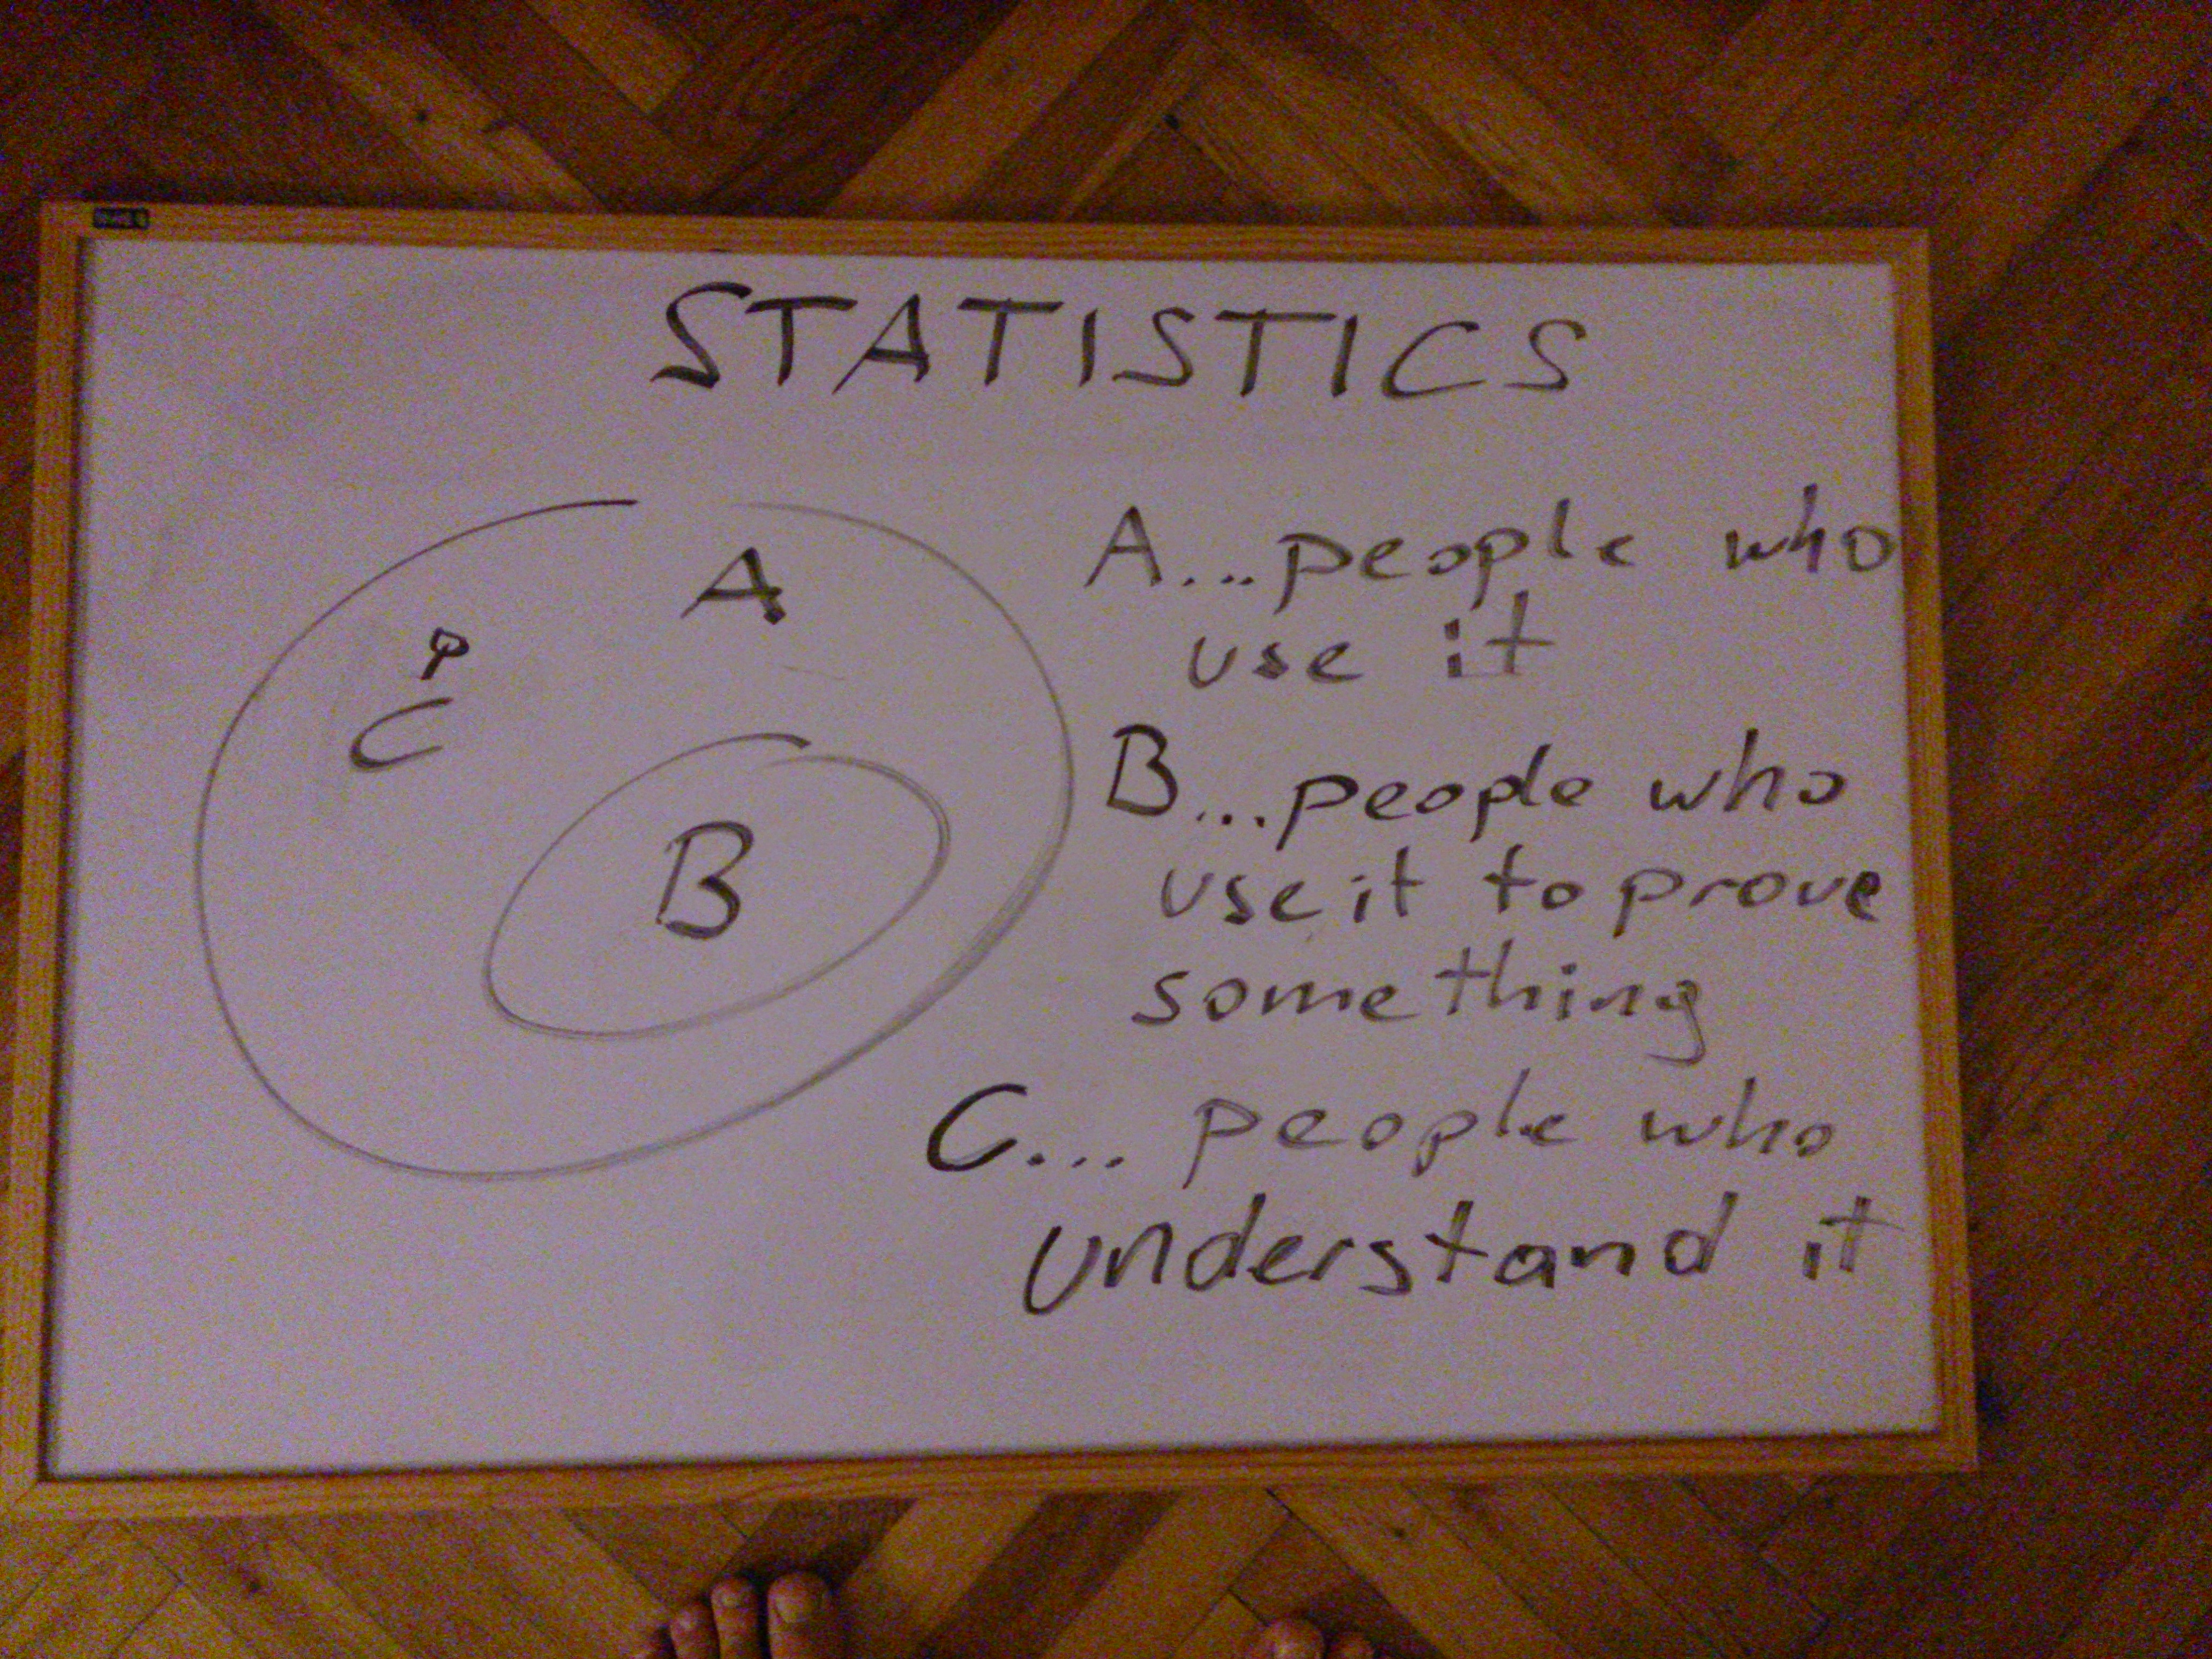 STATISTICS
A
C
B
A...people who
use it
B...people who
use it to prove
something
C... people who
understand it